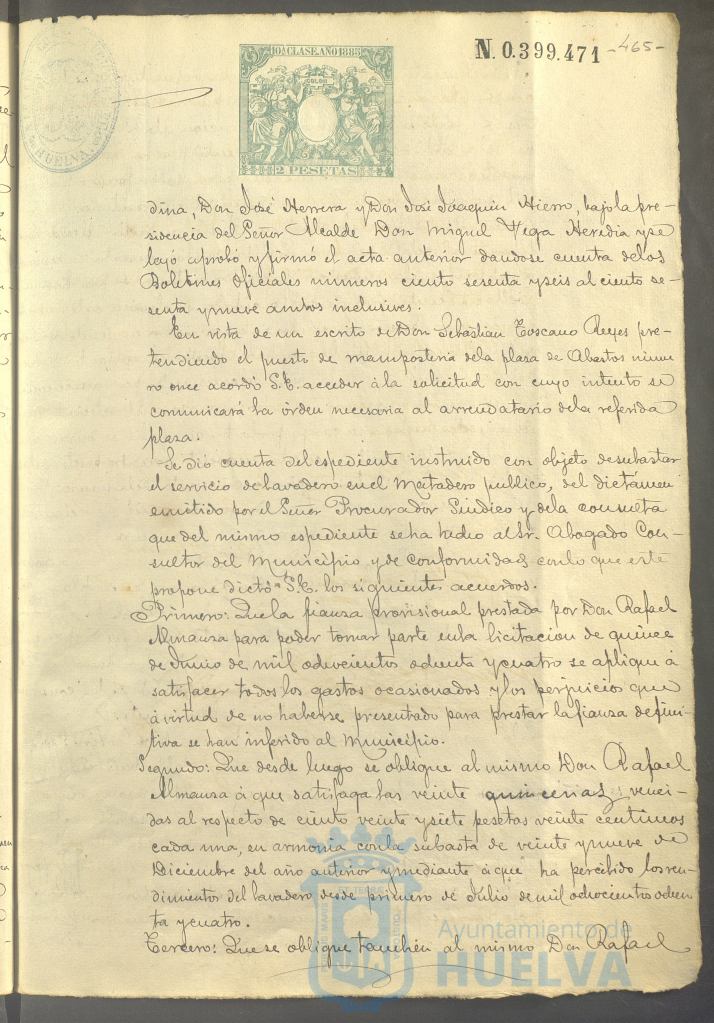 10ª CLASE. AÑO 1885
COLON
2 PESETAS
N. 0.399.471
-465-
HUELVA
dina, Don José Herrera y Don José Joaquin Hierro, bajo la pre-
sidencia del Señor Alcalde Don Miguel Vega Heredia y se
leyó aprobó y firmó el acta anterior dandose cuenta delos
Boletines Oficiales números ciento sesenta y seis al ciento se-
senta y nueve ambos inclusives.
En vista de un escrito de Don Sebastian Toscano Reyes pre-
tendiendo el puesto de mamposteria dela plaza de Abastos núme
ro once acordó S.E. acceder á la solicitud con cuyo intento se
comunicará la órden necesaria al arrendatario dela referida
plaza.
Se dió cuenta del espediente instruido con objeto desubastar
el servicio de lavadero en el Matadero publico, del dictámen
emitido por el Señor Procurador Sindico y dela consulta
que del mismo espediente se ha hecho al Sr. Abogado Con-
sultor del Municipio y de conformidad con lo que este
propone dictó S.E. los siguientes acuerdos.
Primero: Que la fianza provisional prestada por Don Rafael
Almanza para poder tomar parte en la licitacion de quince
de Junio de mil ochocientos ochenta y cuatro se aplique á
satisfacer todos los gastos ocasionados y los perjuicios que
á virtud de no haberse presentado para prestar la fianza defini-
tiva se han inferido al Municipio.
Segundo: Que desde luego se obligue al mismo Don Rafael
Almansa á que satisfaga las veinte quincenas venci-
das al respecto de ciento veinte y siete pesetas veinte centimos
cada una, en armonia con la subasta de veinte y nueve de
Diciembre del año anterior y mediante á que ha percibido los ren-
dimientos del lavadero desde primero de Julio de mil ochocientos ochen-
ta y cuatro.
Tercero: Que se obligue tambien al mismo Don Rafael
Ayuntamiento de
HUELVA